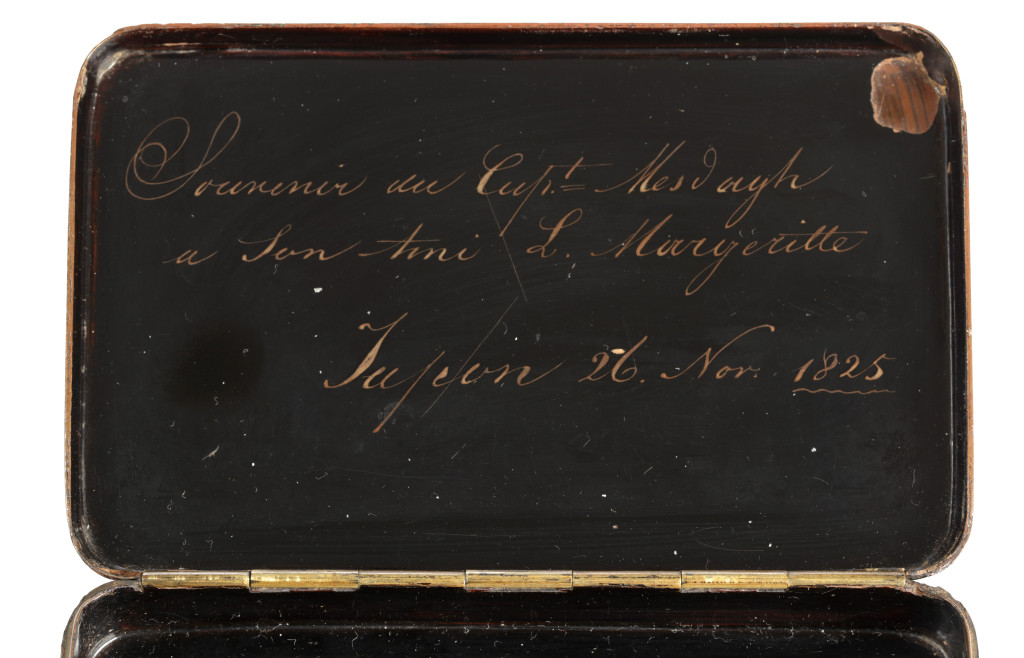 Souvenir du Capt. Mesdagh
a Son Ami L. Margeritte
Japon 26. Nov. 1825